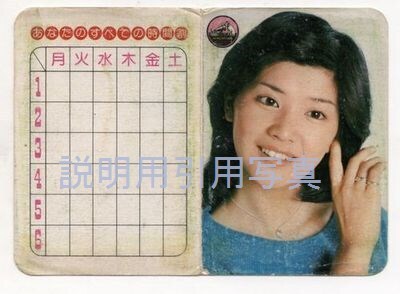 あなたのすべての時間割
月 火 水 木 金 土
1
2
3
4
5
6
説明用引用写真